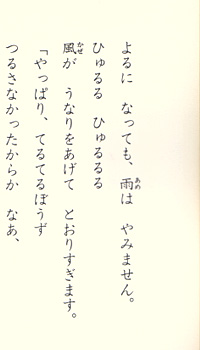 よるに　なっても、雨は　やみません。
ひゅるる　ひゅるるる
風が　うなりをあげて　とおりすぎます。
「やっぱり、てるてるぼうず
つるさなかったからか　なあ、